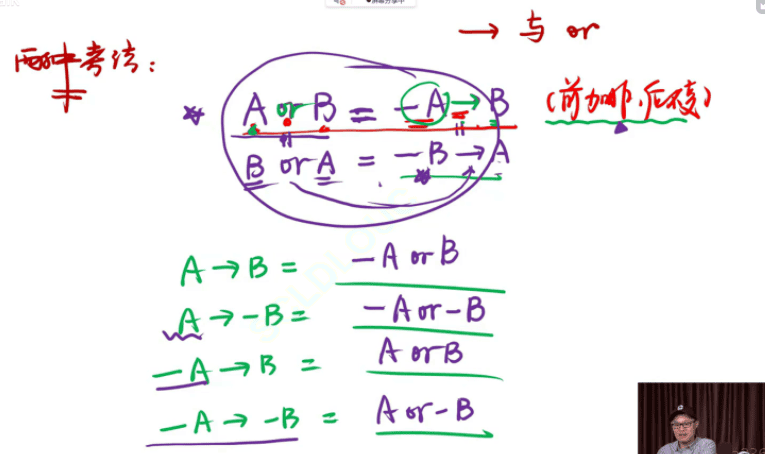 → 与 or
两种考法：
A or B = -A → B
(前加非，后不变)
B or A = -B → A
A → B = -A or B
A → -B = -A or -B
-A → B = A or B
-A → -B = A or -B